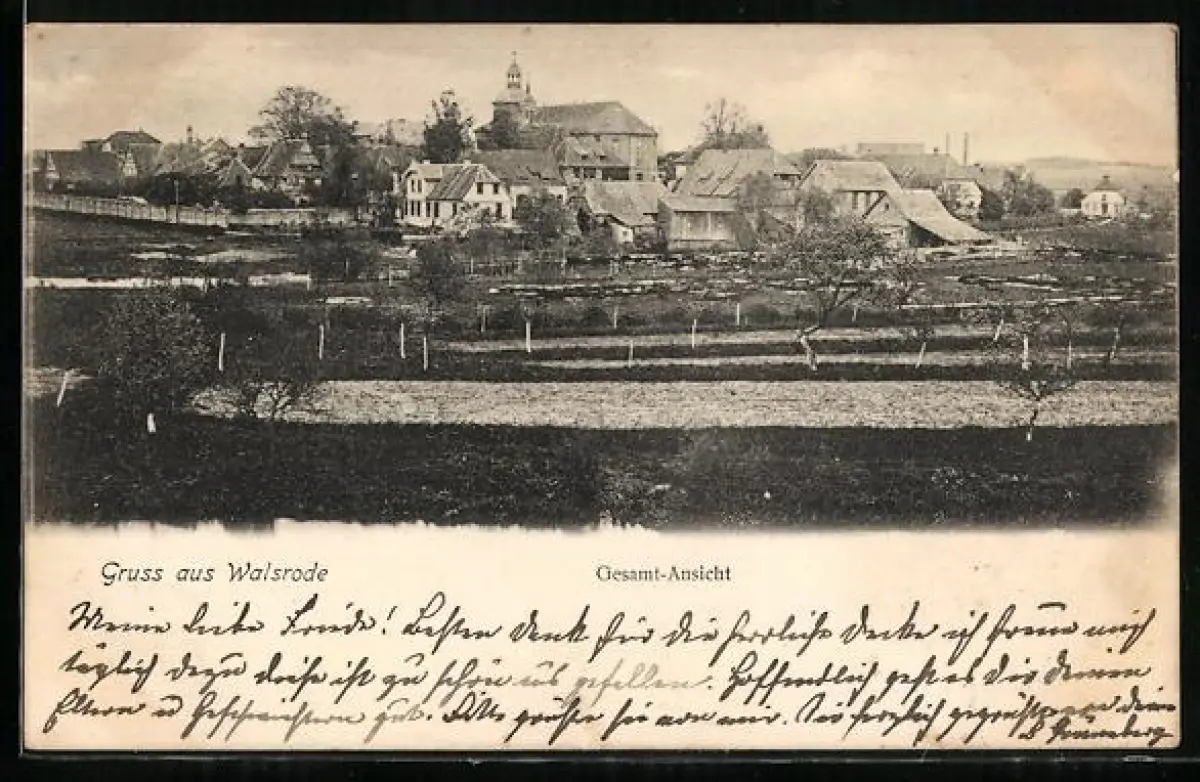 Gruss aus Walsrode Gesamt-Ansicht
Meine liebe Friede! Besten Dank für die herrliche Decke ich freue mich
täglich dazu diese ist zu schön gefallen. Hoffentlich geht es dir deinen
Eltern u Geschwistern gut. Bitte grüße sie von mir. Sei herzlich gegrüßt von deine